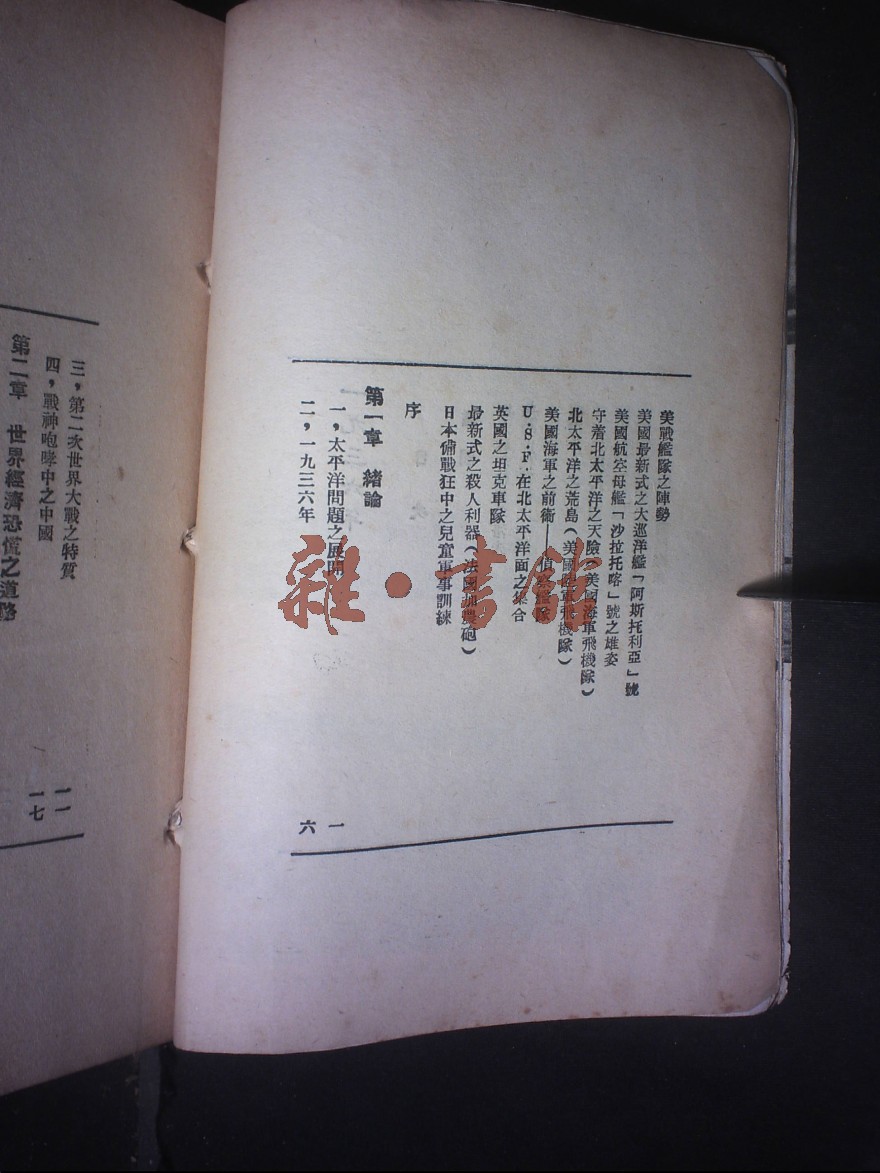 美戰艦隊之陣勢
美國最新式之大巡洋艦「阿斯托利亞」號
美國航空母艦「沙拉托喀」號之雄姿
守着北太平洋之天險（美國海軍飛機隊）
北太平洋之荒島（美國陸軍飛機隊）
美國海軍之前衛——偵察艦隊
U.S.F.在北太平洋面之集合
英國之坦克車隊
最新式之殺人利器（法國加農砲）
日本備戰狂中之兒童軍事訓練
序
第一章 緒論
一，太平洋問題之展開 一
二，一九三六年 六
三，第二次世界大戰之特質 一一
四，戰神咆哮中之中國 一七
第二章 世界經濟恐慌之道路
雜·書館